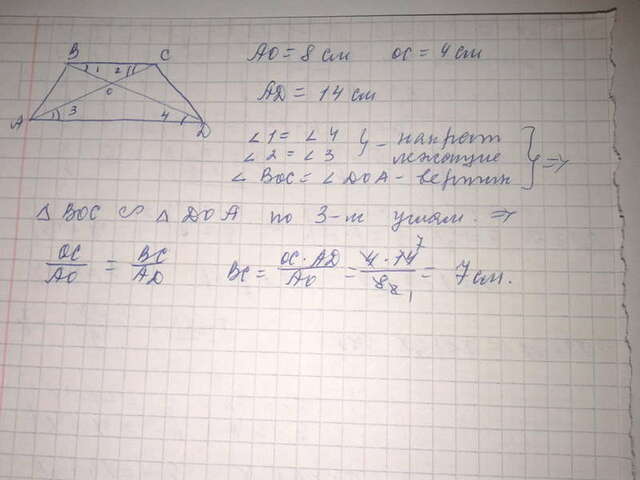 B C
1 2
O
3 4
A D
AO = 8 см OC = 4 см
AD = 14 см
∠1 = ∠4 } - накрест
∠2 = ∠3 лежащие
∠BOC = ∠DOA - вертик } =>
△BOC ∽ △DOA по 3-м углам. =>
OC/AO = BC/AD BC = OC·AD/AO = 4·14 7/8 2 1 = 7 см.